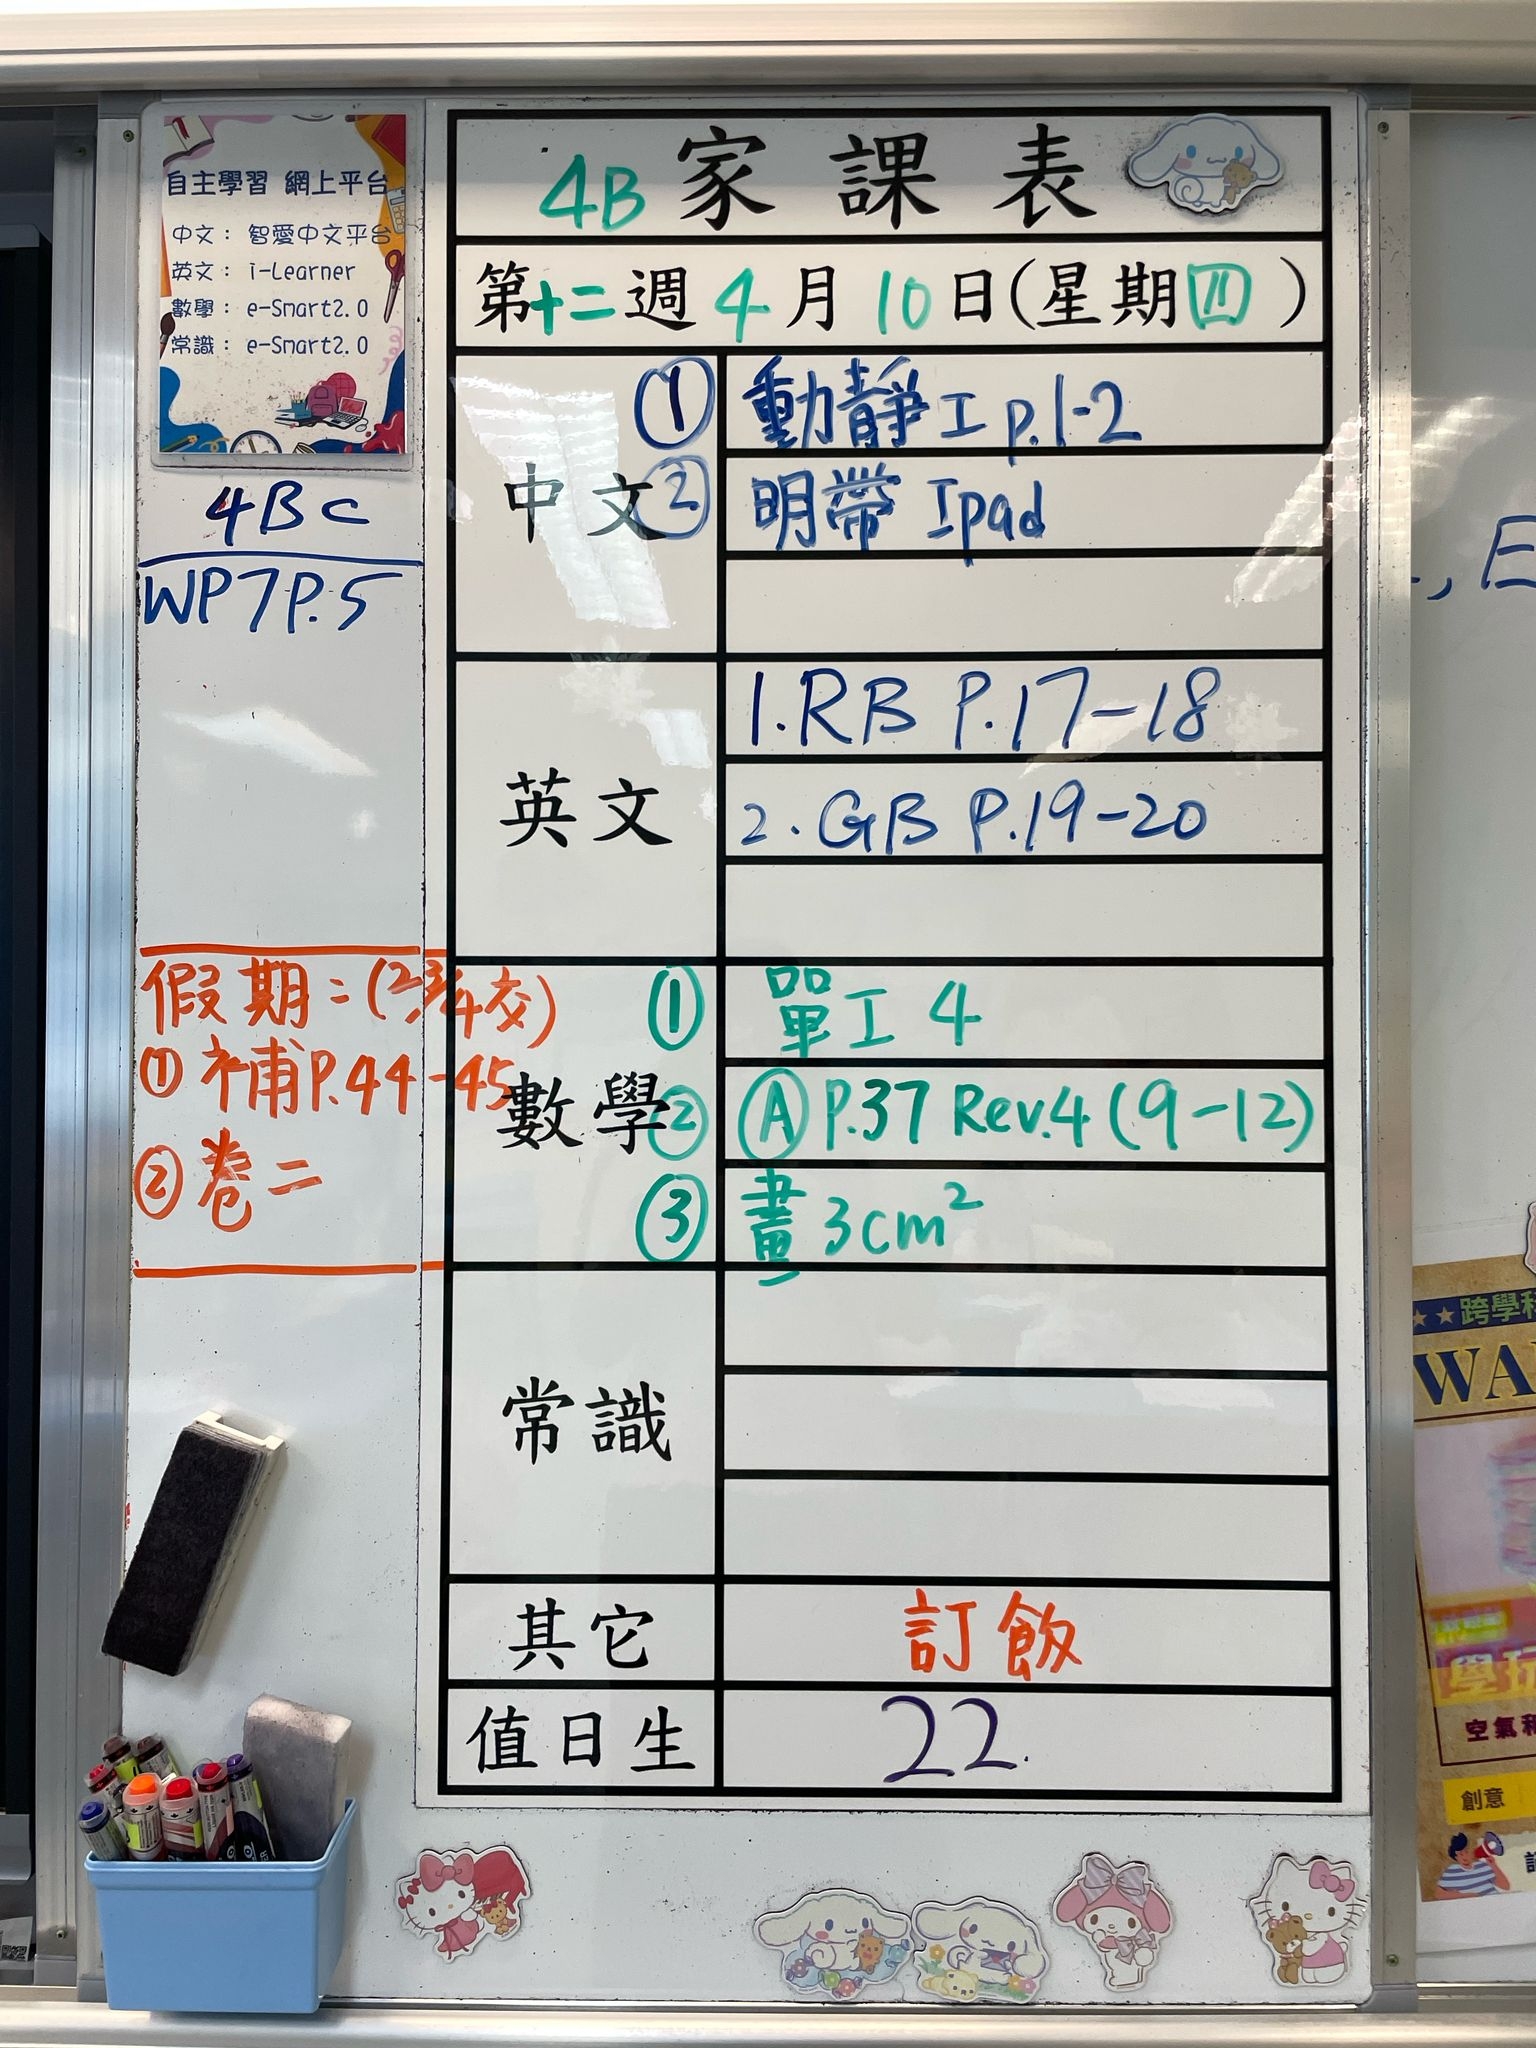 自主學習 網上平台
中文： 智愛中文平台
英文： i-Learner
數學： e-Smart2.0
常識： e-Smart2.0
4BC
WP7P.5
假期：(23/4交)
① 補P.44-45
② 卷二
4B 家課表
第十二週 4月10日(星期四)
中文
① 動靜工 p.1-2
② 明帶 Ipad
英文
1. RB P.17-18
2. GB P.19-20
數學
① 單工 4
② Ⓐ P.37 Rev.4 (9-12)
③ 畫 3cm²
常識
其它
訂飯
值日生
22.
, 日
跨學科
WA
學玩
空氣和
創意